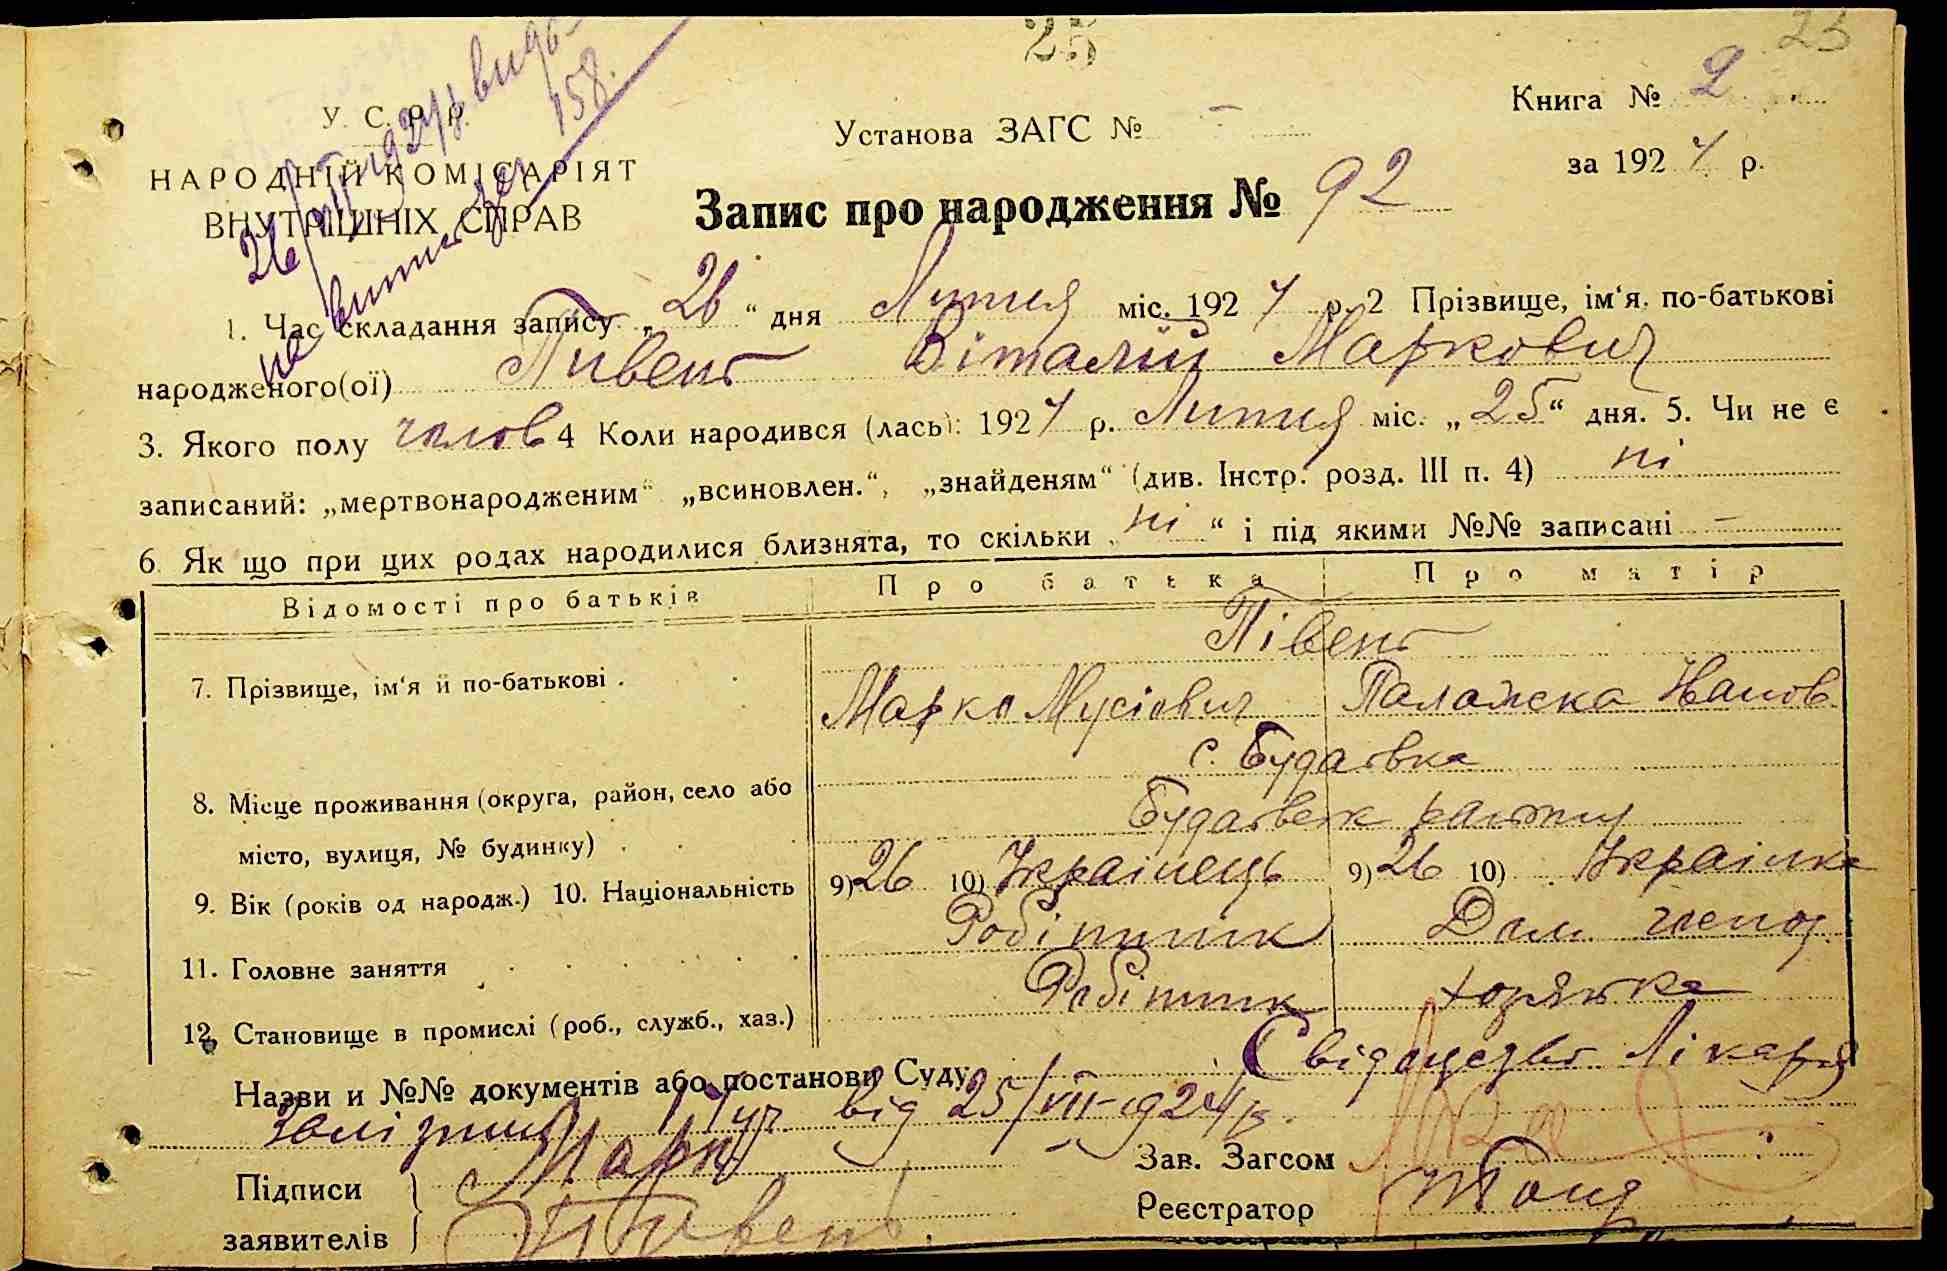 25
23
У. С. Р. Р.
НАРОДНІЙ КОМІСАРІЯТ
ВНУТРІШНІХ СПРАВ
Установа ЗАГС № –
Книга № 2
за 1924 р.
Запис про народження № 92
158
1. Час складання запису „26“ дня Липня міс. 1924 р. 2 Прізвище, ім‘я, по-батькові
народженого(ої) Пивень Віталій Маркович
3. Якого полу чолов 4 Коли народився (лась): 1924 р. Липня міс. „25“ дня. 5. Чи не є
записаний: „мертвонародженим“ „всиновлен.“, „знайденям“ (див. Інстр. розд. III п. 4) ні
6. Як що при цих родах народилися близнята, то скільки „ні“ і під якими №№ записані –
Відомості про батьків Про батька Про матір
Півень
7. Прізвище, ім‘я й по-батькові . Марко Мусієвич Палажка Іванов
с. Будаєвка
8. Місце проживання (округа, район, село або
місто, вулиця, № будинку) Будаєвск
9. Вік (років од народж.) 10. Національність 9) 26 10) Українець 9) 26 10) Українка
11. Головне заняття Робітник Дом. господ
12. Становище в промислі (роб., служб., хаз.) Робітник
Назви и №№ документів або постанови Суду Свідоцтво Лікаря
від 25/VII-1924 р.
Підписи
заявителів
Марко
Півень
Зав. Загсом
Реєстратор